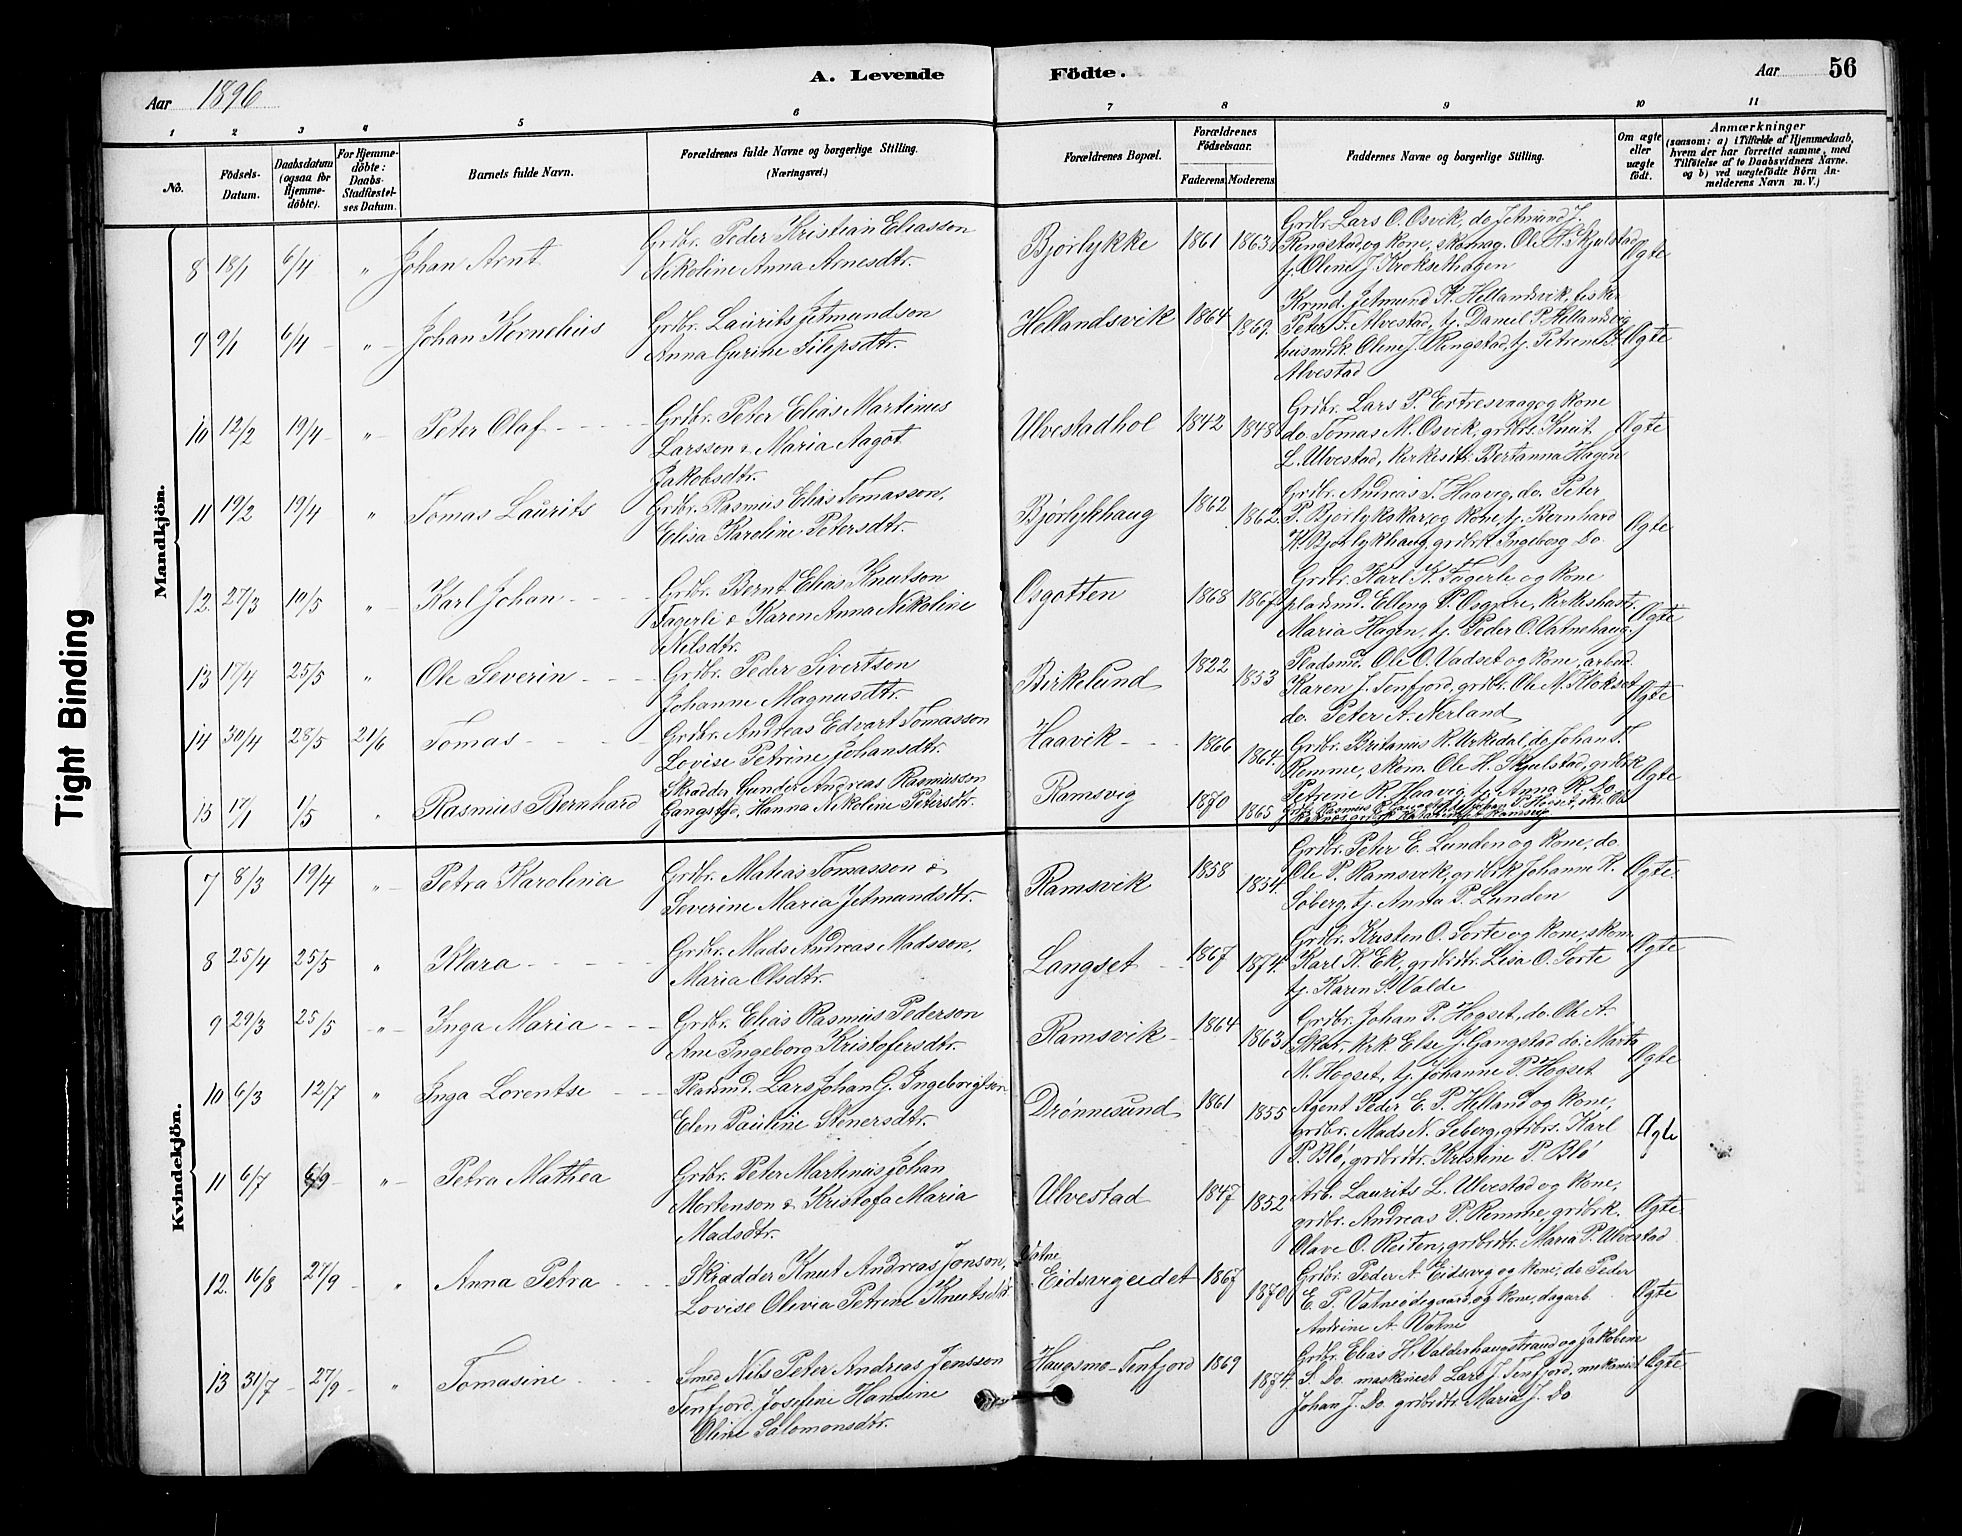 A. Levende Födte.
Aar 1896
Aar 56
1 2 3 4 5 6 7 8 9 10 11
No.
Födsels-Datum.
Daabsdatum (ogsaa for Hjemme-döbte).
For Hjemme-döbte: Daabs-Stadfæstel-ses Datum.
Barnets fulde Navn.
Forældrenes fulde Navne og borgerlige Stilling.
(Næringsvei.)
Forældrenes Bopæl.
Forældrenes Födselsaar.
Faderens. Moderens.
Faddernes Navne og borgerlige Stilling.
Om ægte eller uægte födt.
Anmærkninger
(saasom: a) i Tilfælde af Hjemmedaab, hvem der har forrettet samme, med Tilföielse af to Daabsvidners Navne. og b) ved uægtefödte Börn An-melderens Navn m. V.)
Mandkjön.
8 18/1 6/4 " Johan Arnt Grdbr. Peder Kristian Eliasson
Nikoline Anna Arnesdtr. Bjørlykke 1861 1863 Grdbr. Lars O. Osvik, do. Jetmund J.
Ringstad og kone, skomag. Ole H. Skjulstad
tj. Oline J. Kroksethagen Ægte
9 9/1 6/4 " Johan Kornelius Grdbr. Laurits Jetmundson
Anna Gurine Filipsdtr. Hellandsvik 1864 1869. Krmd. Jetmund K. Hellandsvik, fisker
Peter F. Alvestad, tj. Daniel P. Hellandsvig
husmdk. Oline J. Ringstad, tj. Petrine
Alvestad Ægte
10 12/2 19/4 " Peter Olaf Grdbr. Peter Elias Martinus
Larsson & Maria Aagot
Jakobsdtr. Ulvestadhol 1842 1848 Grdbr. Lars P. Eirtresvaag og kone
do. Tomas M. Osvik, grdbrs. Knut
L. Ulvestad, kirkesdtr. Bertanna Hagen Ægte
11 19/2 19/4 " Tomas Laurits Grdbr. Rasmus Elias Tomasson,
Elisa Karoline Petersdtr. Bjørlykhaug 1862 1862. Grdbr. Andreas T. Haavig, do. Peter
P. Bjørlykskar og kone, tj. Bernhard
K. Bjørlykhaug, grdbrk Ingeborg Do Ægte
12. 27/3 10/5 " Karl Johan Grdbr. Bernt Elias Knutson
Fagerli & Karen Anna Nikoline
Nilsdtr. Osgotten 1868 1867 Grdbr. Karl K. Fagerli og kone
pladsmd. Elling P. Osgotte, kirkeshastr.
Maria Hagen, tj. Peder O. Vatnehaug Ægte
13 17/4 25/5 " Ole Severin Grdbr. Peder Sivertson
Johanne Magnusdtr. Birkelund 1822 1853 Pladsmd. Ole O. Vadset og kone, arbeid.
Karen J. Tenfjord, grdbr. Ole M. Klokset
do. Peter A. Nerland Ægte
14 30/4 28/5 21/6 Tomas Grdbr. Andreas Edvart Tomasson
Lovise Petrine Johansdtr. Haavik 1866 1864. Grdbr. Britanus R. Urkedal, do Johan T.
Remme, skom. Ole H. Skjulstad, grdbrk
Petrene R. Haavig, tj. Anna R. Do Ægte
15 17/1 1/5 " Rasmus Bernhard Skrædder Gunder Andreas Rasmusson
Gangstø, Hanna Nikoline Petersdtr. Ramsvig 1870 1865
Kvindekjön.
7 8/3 19/4 " Petra Karolina Grdbr. Matias Tomasson &
Severine Maria Jetmundsdtr. Ramsvik 1858 1854. Grdbr. Peter E. Lunden og kone, do.
Ole P. Ramsvik, grdbrk Johanne K.
Søberg, tj. Anna P. Lunden Ægte
8 25/4 25/5 " Klara Grdbr. Mads Andreas Madsson,
Maria Olsdtr. Langset 1867 1874. Grdbr. Kristen O. Sorte og kone, skom
Karl K. Ek, grdbrdtr. Lisa O. Sorte
tj. Karen S. Valde Ægte
9 29/3 25/5 " Inga Maria Grdbr. Elias Rasmus Pederson
Ane Ingeborg Kristofersdtr. Ramsvik 1864 1863 Grdbr. Johan P. Hogset, do. Ole A.
Skar, krk. Else J. Gangstad do. Marta
M. Hogset, tj. Johanne P. Hogset Ægte
10 6/3 12/7 " Inga Lorentse Pladsmd. Lars Johan G. Ingebrigtson
Elen Pauline Stenersdtr. Drønnesund 1861 1855 Agent Peder E. P. Helland og kone,
grdbr. Mads N. Seberg, grdbrs. Karl
P. Blø, grdbrdtr. Kristine P. Blø Ægte
11 6/7 6/9 " Petra Mathea Grdbr. Peter Martinus Johan
Mortenson & Kristofa Maria
Madsdtr. Ulvestad 1847 1852 Arb. Laurits L. Ulvestad og kone,
grdbr. Andreas P. Remme, grdbrk.
Olave O. Reiten, grdbrdtr. Maria P. Ulvestad Ægte
12. 16/8 27/9 " Anna Petra Skrædder Knut Andreas Jonson,
Lovise Olivia Petrine Knutsdtr Vatne
Eidsvigeidet 1867 1870 Grdbr. Peder A. Eidsvig og kone, do Peder
E. P. Vatneødegaard og kone, dagarb.
Andrine A. Vatne Ægte
13 31/7 27/9 " Tomasine Smed Nils Peter Andreas Jensson
Tenfjord. Josefine Hansine
Oline Salomonsdtr. Haugsmo-Tenfjord 1869 1874. Grdbr. Elias H. Valderhaugstrand og Jakobine
S. Do. maskinest Lars J. Tenfjord, mekanist
Johan J. Do. grdbrdtr. Maria J. Do Ægte
Tight Binding